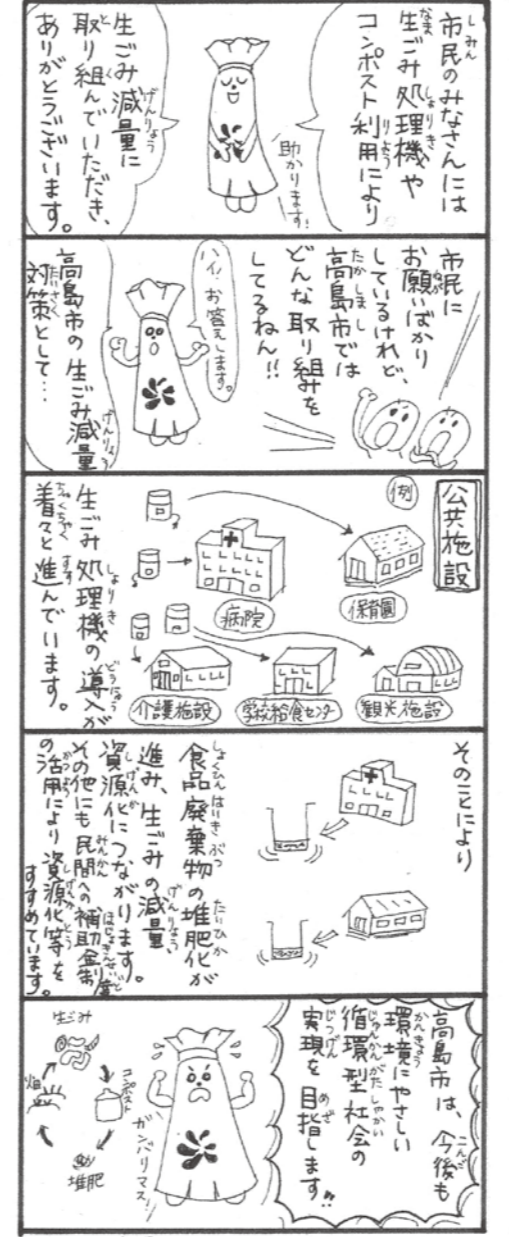 市民のみなさんには
生ごみ処理機や
コンポスト利用により
助かります!
生ごみ減量に
取り組んでいただき、
ありがとうございます。
市民に
お願いばかり
しているけれど、
高島市では
どんな取り組みを
してるねん!!
ハイ!お答えします。
高島市の生ごみ減量
対策として…
公共施設
例
保育園
病院
観光施設
学校給食センター
介護施設
生ごみ処理機の導入が
着々と進んでいます。
そのことにより
食品廃棄物の堆肥化が
進み、生ごみの減量
資源化につながります。
その他にも民間への補助金制度
の活用により資源化等を
すすめています。
高島市は、今後も
環境にやさしい
循環型社会の
実現を目指します!!
ガンバリマス!
生ごみ
コンポスト
堆肥
畑